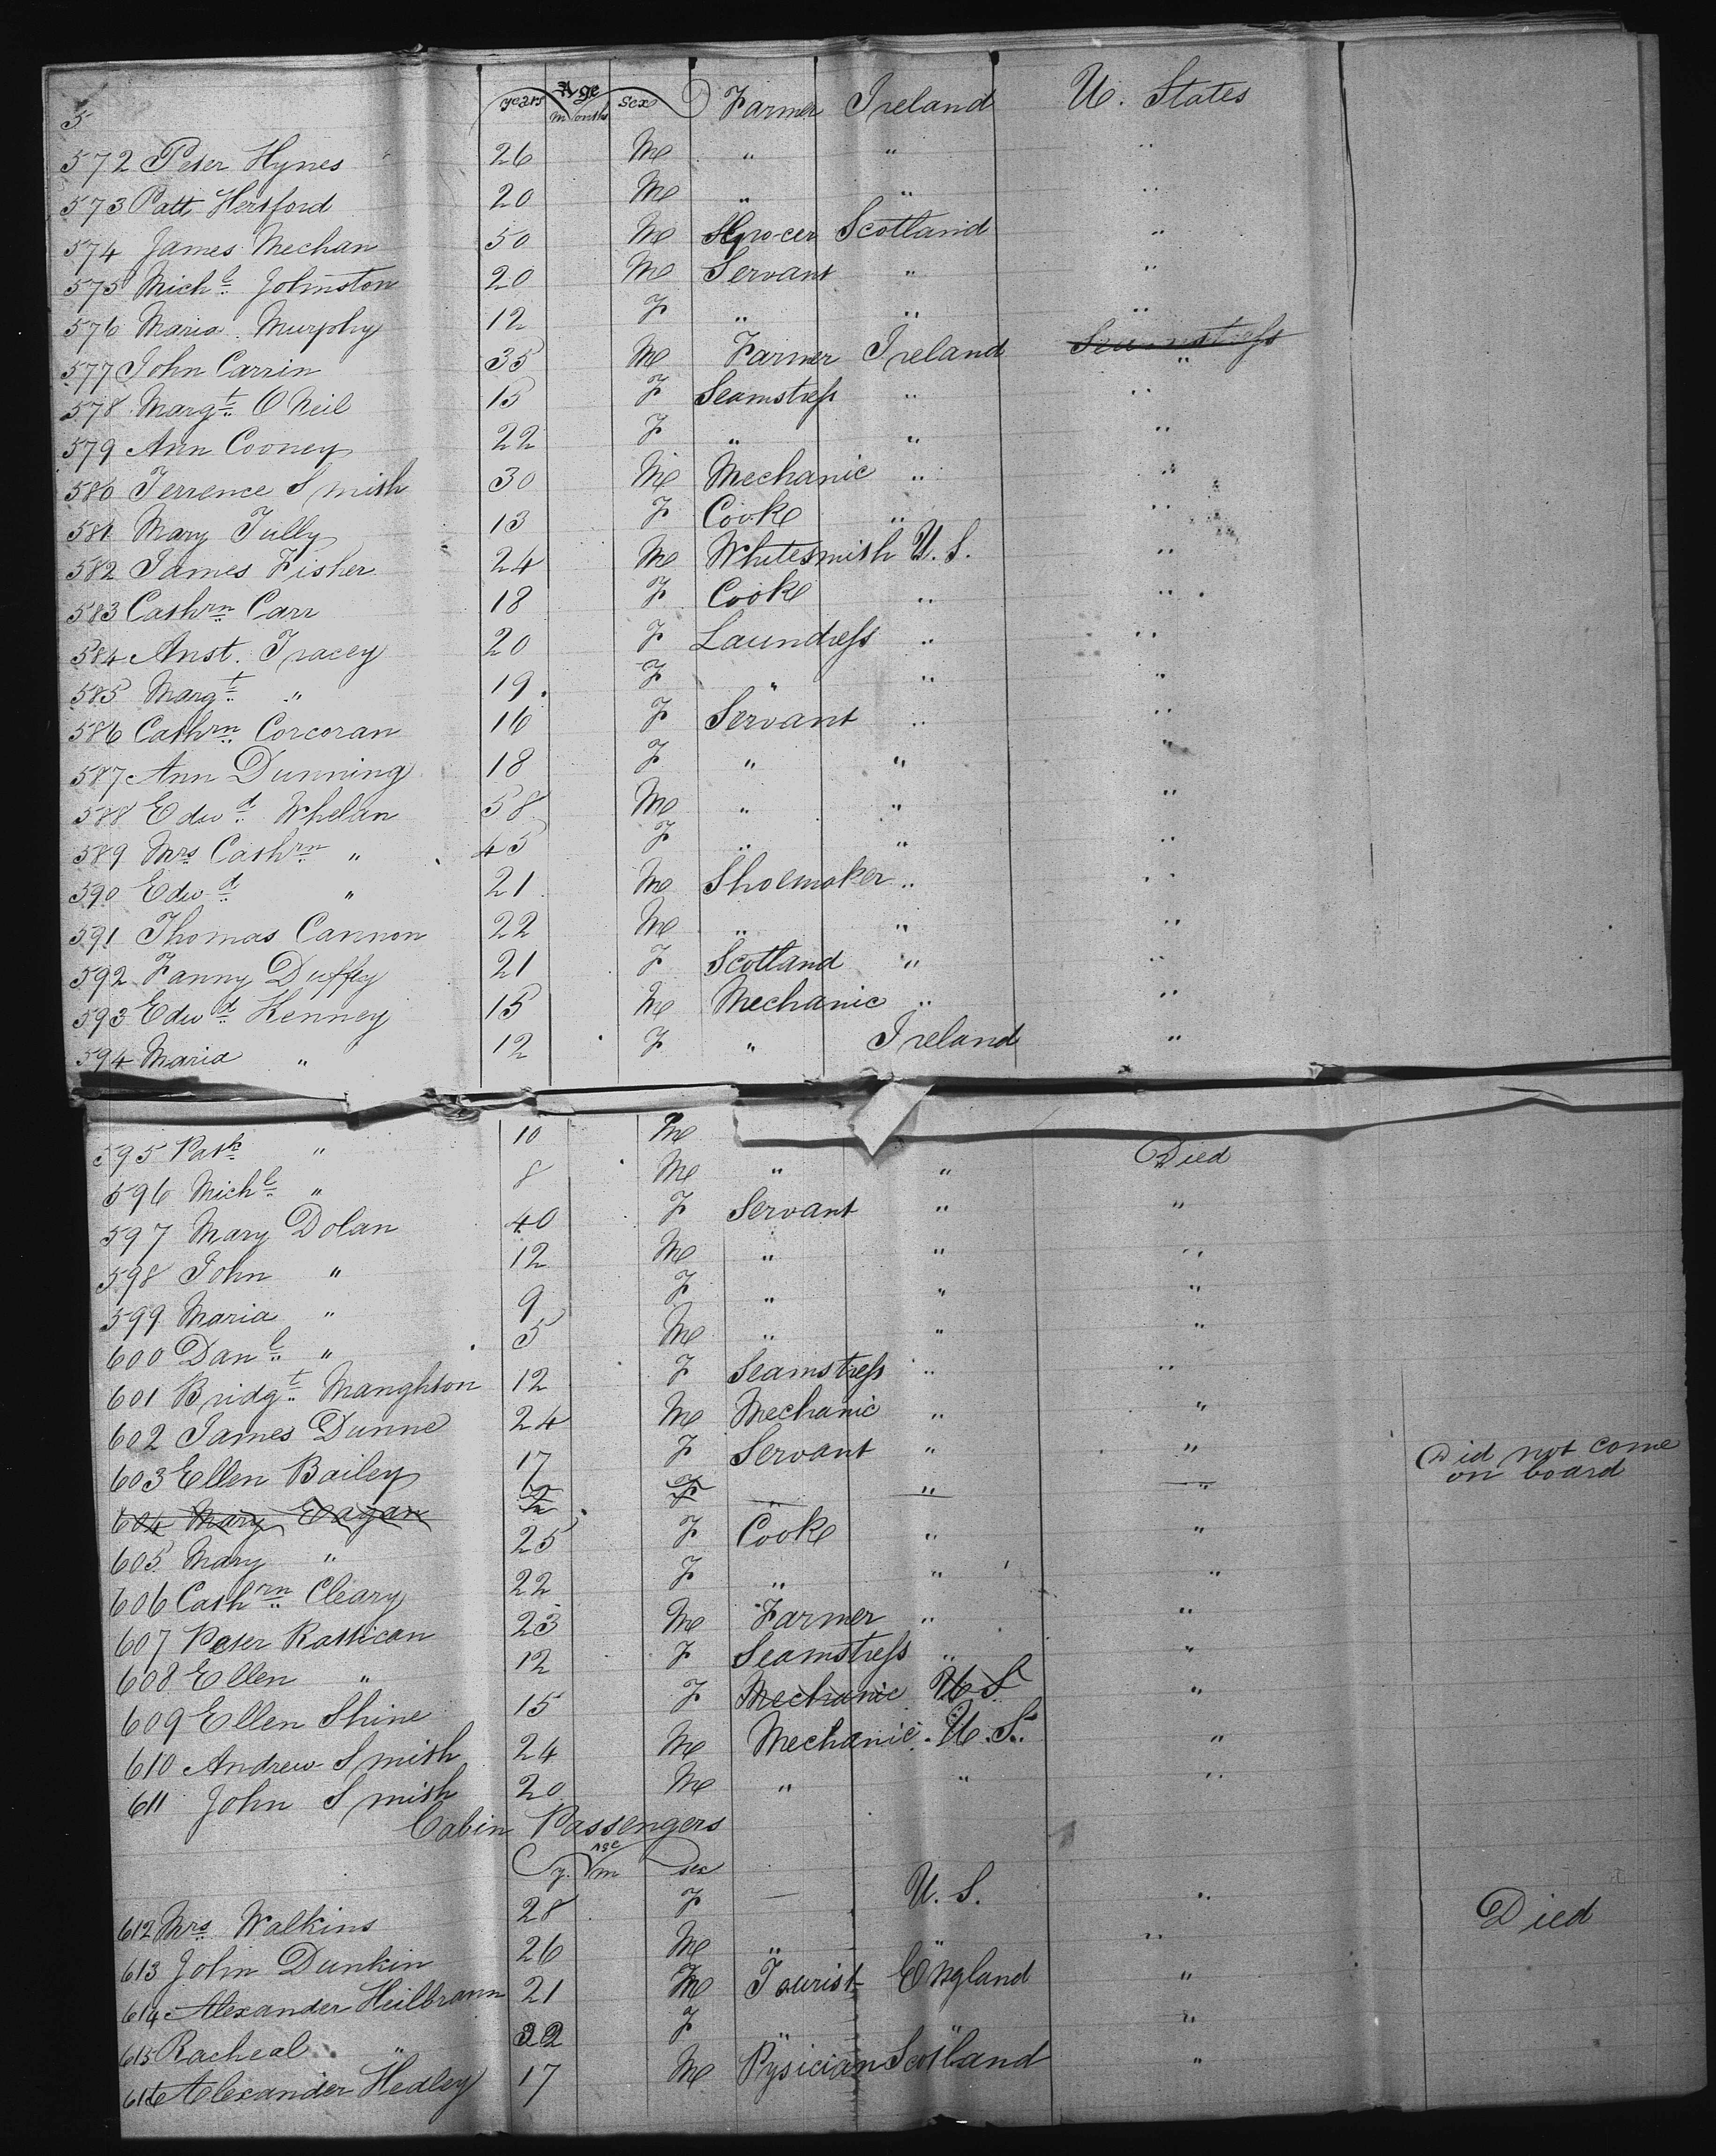 5 years Age months sex Farmer Ireland U. States
572 Peter Hynes 26 M " " "
573 Patt Hertford 20 M " " "
574 James Mechan 50 M Grocer Scotland "
575 Michl Johnston 20 M Servant " "
576 Maria Murphy 12 F " " "
577 John Carrin 35 M Farmer Ireland Seamstress "
578 Margt O Neil 15 F Seamstress " "
579 Ann Cooney 22 F " " "
580 Terrence Smith 30 M Mechanic " "
581 Mary Tully 13 F Cook " "
582 James Fisher 24 M Whitesmith U.S. "
583 Cathrn Carr 18 F Cook " "
584 Anst. Tracey 20 F Laundress " "
585 Margt " 19 F " " "
586 Cathrn Corcoran 16 F Servant " "
587 Ann Dunning 18 F " " "
588 Edwd Whelan 58 M " " "
589 Mrs Cathrn " 45 F " " "
590 Edwd " 21 M Shoemaker " "
591 Thomas Cannon 22 M " " "
592 Fanny Duffey 21 F Scotland " "
593 Edwd Kenney 15 M Mechanic " "
594 Maria " 12 F " Ireland "
595 Patk " 10 M Died
596 Michl " 8 M " "
597 Mary Dolan 40 F Servant " "
598 John " 12 M " " "
599 Maria " 9 F " " "
600 Danl " 5 M " " "
601 Bridgt Manghton 12 F Seamstress " "
602 James Dunne 24 M Mechanic " "
603 Ellen Bailey 17 F Servant " " Did not come
on board
604 Mary Eagan F " " "
605 Mary " 25 F Cook " "
606 Cathrn Cleary 22 F " " "
607 Peter Rattican 23 M Farmer " "
608 Ellen " 12 F Seamstress " "
609 Ellen Shine 15 F Mechanic U S "
610 Andrew Smith 24 M Mechanic U.S. "
611 John Smith 20 M " " "
Cabin Passengers
age
y. m sex
612 Mrs Walkins 28 F — U. S. " Died
613 John Dunkin 26 M " " "
614 Alexander Heilbrann 21 M Tourist England "
615 Racheal " 22 F " " "
616 Alexander Hedley 17 M Pysician Scotland "